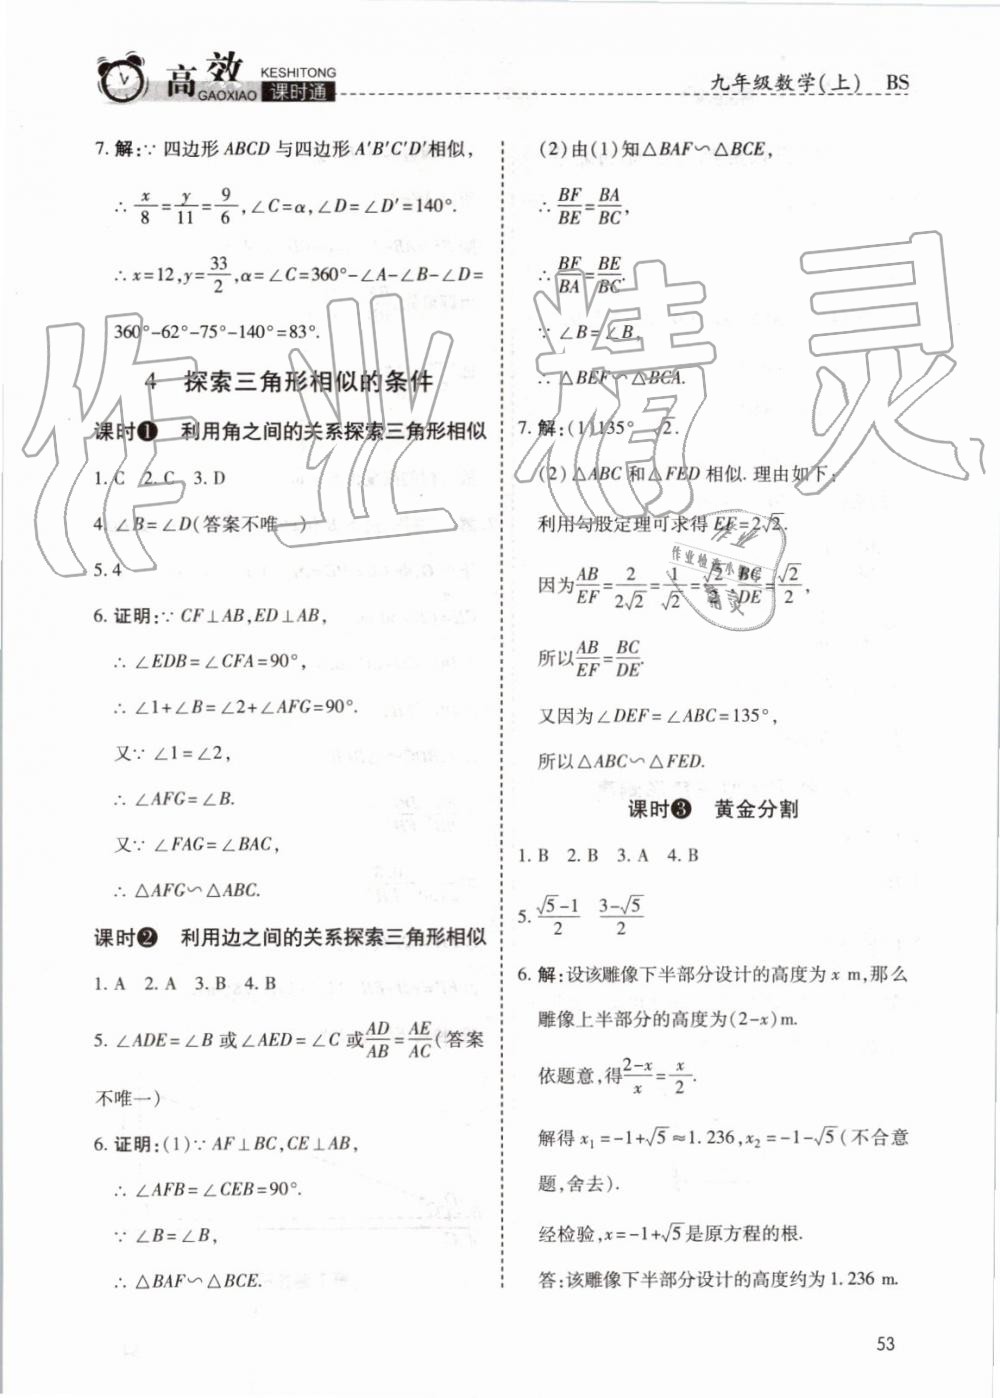 高效
KESHITONG
GAOXIAO 课时通
九年级数学(上) BS
7. 解:∵ 四边形 ABCD 与四边形 A′B′C′D′相似,
∴ x/8 = y/11 = 9/6, ∠C=α, ∠D=∠D′=140°.
∴ x=12, y=33/2, α=∠C=360°-∠A-∠B-∠D=
360°-62°-75°-140°=83°.
4 探索三角形相似的条件
课时❶ 利用角之间的关系探索三角形相似
1. C 2. C 3. D
4. ∠B=∠D(答案不唯一)
5. 4
6. 证明:∵ CF⊥AB, ED⊥AB,
∴ ∠EDB=∠CFA=90°,
∴ ∠1+∠B=∠2+∠AFG=90°.
又∵ ∠1=∠2,
∴ ∠AFG=∠B.
又∵ ∠FAG=∠BAC,
∴ △AFG∽△ABC.
课时❷ 利用边之间的关系探索三角形相似
1. A 2. A 3. B 4. B
5. ∠ADE=∠B 或∠AED=∠C 或 AD/AB = AE/AC (答案
不唯一)
6. 证明:(1)∵ AF⊥BC, CE⊥AB,
∴ ∠AFB=∠CEB=90°.
∵ ∠B=∠B,
∴ △BAF∽△BCE.
(2)由(1)知△BAF∽△BCE,
∴ BF/BE = BA/BC,
∴ BF/BA = BE/BC.
∵ ∠B=∠B,
∴ △BEF∽△BCA.
7. 解:(1)135° √2.
(2)△ABC 和△FED 相似. 理由如下:
利用勾股定理可求得 EF=2√2.
因为 AB/EF = 2/2√2 = 1/√2 = √2/2, BC/DE = √2/2,
所以 AB/EF = BC/DE.
又因为∠DEF=∠ABC=135°,
所以△ABC∽△FED.
课时❸ 黄金分割
1. B 2. B 3. A 4. B
5. (√5-1)/2 (3-√5)/2
6. 解:设该雕像下半部分设计的高度为 x m,那么
雕像上半部分的高度为(2-x)m.
依题意,得 (2-x)/x = x/2.
解得 x₁=-1+√5≈1.236, x₂=-1-√5(不合意
题,舍去).
经检验, x=-1+√5是原方程的根.
答:该雕像下半部分设计的高度约为 1.236 m.
53
作业精灵
作业
作业检查小
精灵